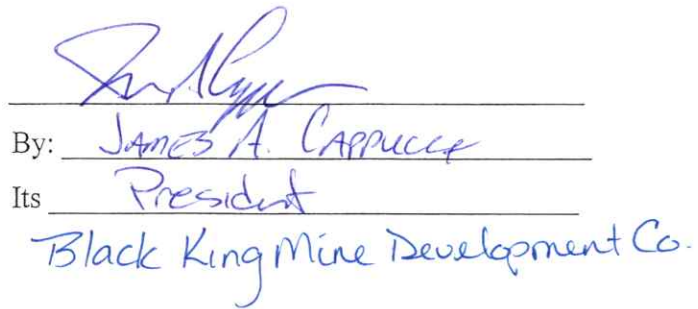 By: JAMES A. CAPPUCCI
Its President
Black King Mine Development Co.